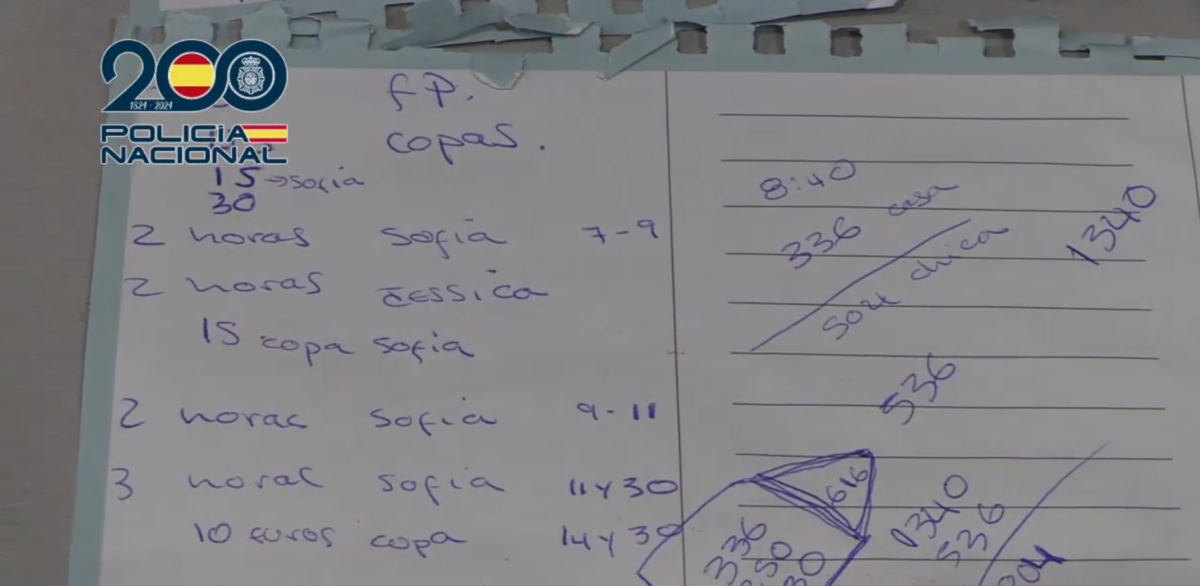 200
1824 - 2024
POLICIA
NACIONAL
FP.
copas.
15 → sofia
30
2 horas sofia 7-9
2 horas Jessica
15 copa sofia
2 horas sofia 9-11
3 horas sofia 11 y 30
10 euros copa 14 y 30
8:40
336 casa
504 chica
1340
536
616
1340
536
336